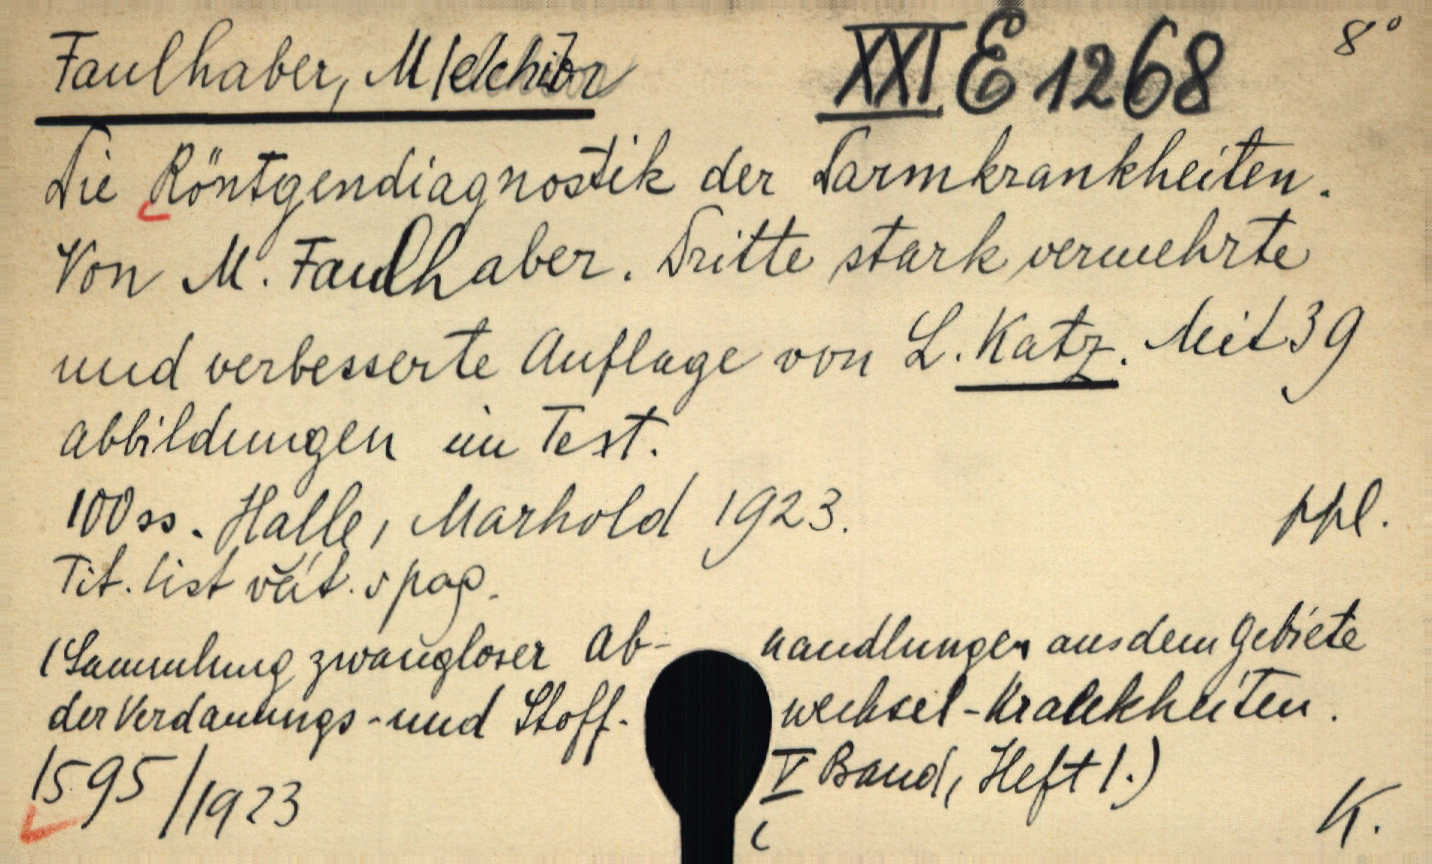 Faulhaber, Melchior XXI E 1268 8°
Die Röntgendiagnostik der Darmkrankheiten.
Von M. Faulhaber. Dritte stark vermehrte
und verbesserte Auflage von L. Katz. Mit 39
Abbildungen im Text.
100 ss. Halle, Marhold 1923. ppl.
Tit. list
(Sammlung zwangloser Abhandlungen aus dem Gebiete
der Verdauungs- und Stoffwechsel-Krankheiten.
V Band, Heft 1.)
1595/1923 K.